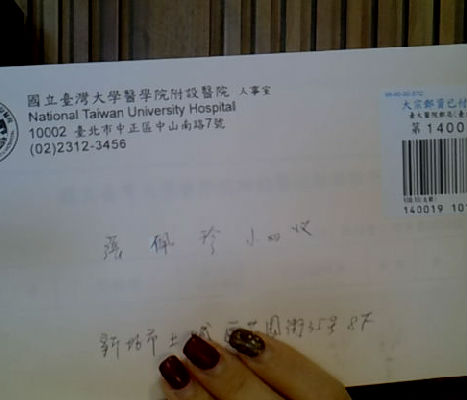 國立臺灣大學醫學院附設醫院 人事室
National Taiwan University Hospital
10002 臺北市中正區中山南路7號
(02)2312-3456
大宗郵資已付
第1400
140019 10
張 佩 珍 小姐 收
新北市土城區
街35號8F